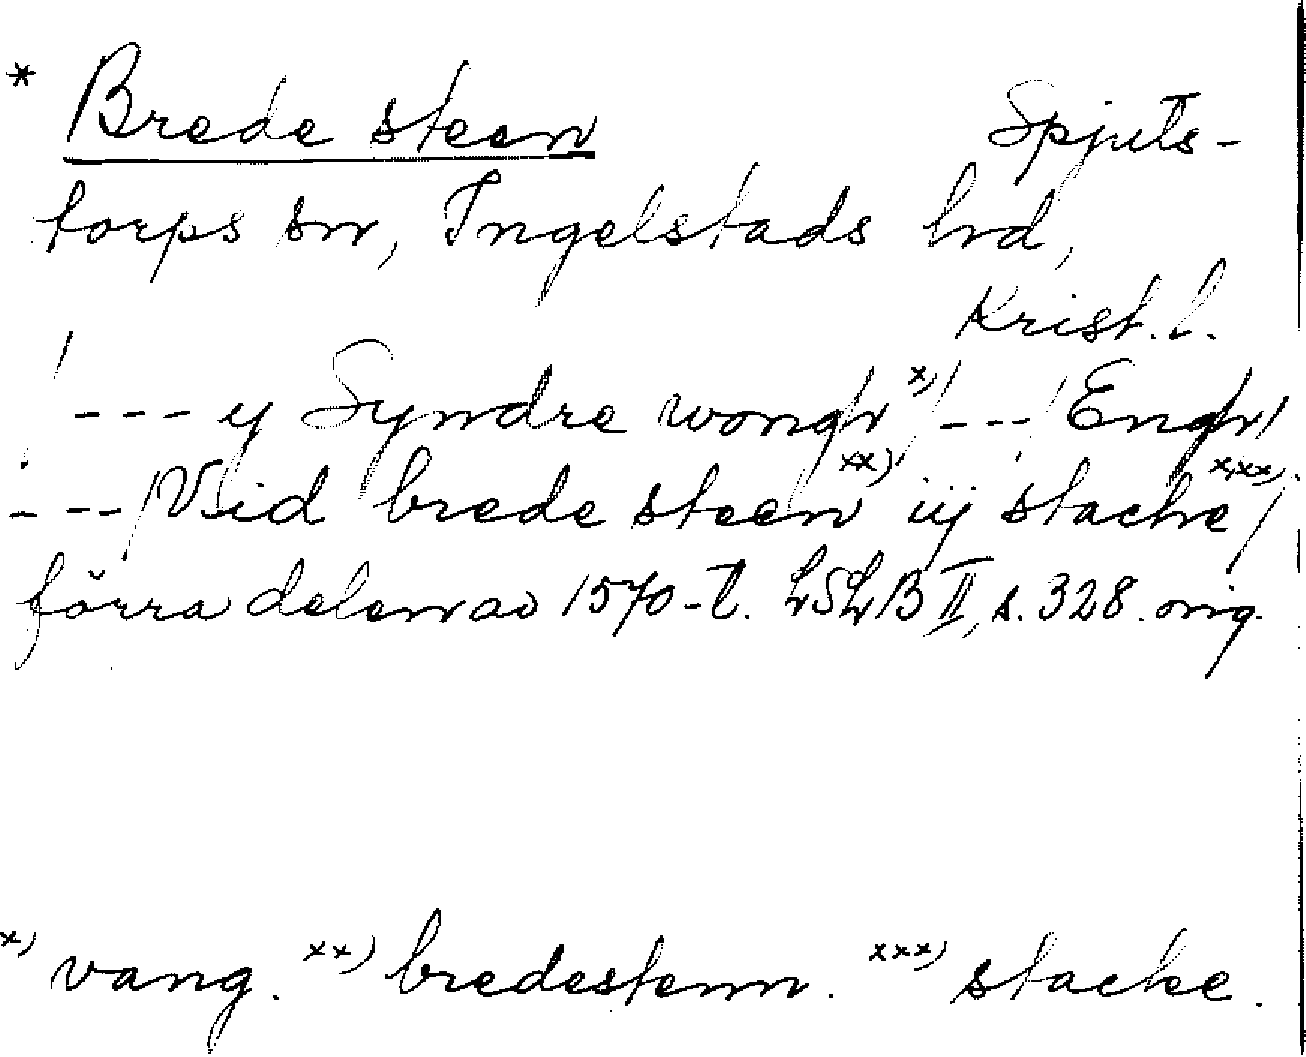 * Brede steen Spjuts-
torps sn, Ingelstads hd,
Krist. l.
/--- y Syndre wongh x) /---/ Engh/
/---/ Ved brede steen xx) iij stacke xxx)/
förra delen av 1570-t. LSLB II, s. 328. orig.
x) vang. xx) bredestenn. xxx) stacke.